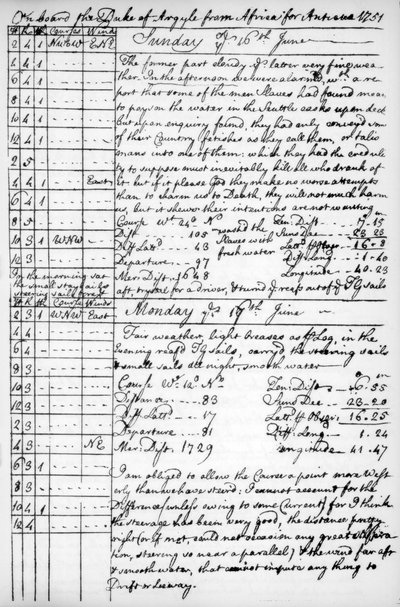 On board the Duke of Argyle from Africa for Antigua 1751
H K F Courses Winds
Sunday ye 16th June
2 4 1 NWbW ENE
The former part cloudy ye latter very fine wea-
4 4 1
ther. In the afternoon we were alarmd with a re-
6 4 1
port that some of the men slaves had found means
8 4 1
to poyson the water in the scuttle casks upon deck
10 4 1
but upon enquiry found they had only conveyd some
12 4 1
of their Country fetishes as they call them, or talis-
mans into one of them: which they had the credule
2 5
ty to suppose must inevitably kill all who drank of
4 4 1 East
it but if it please God they make no worse attempts
6 4 1
than to charm us to Death, they will not much harm
us, but it shews their intentions are not wanting
8 5
Course W 24° No
Zen: Dist 7-15
Dist 105
washed the
Suns Dec 23 23
10 3 1 WNW
Diff Latd 43
Slaves with
Latd Obser 16-8
12 3
Departure 97
fresh water
Diff Long 1-40
Mer: Dist 1648
Longitude 40-23
In the morning sat
the small stay sails
steering sails
aft, try sail for a driver, & turnd ye reefs out of ye Tg sails
H K F Courses Winds
Monday ye 17th June
2 3 1 WNW East
4 4
Fair weather, light breases as pr Log, in the
6 4
Evening reefd Tg Sails, carryd the steering sails
8 4
& small sails all night, smooth water
10 3
Course W: 12° No
Distance 83
Suns Dec 23-20
12 3
Diff: Latd: 17
Latd: pr Obser: 16-25
2 3
Departure 81
Diff: Long 1-24
4 3 NE
Mer: Dist: 1729
Longitude 41-47
6 3 1
I am obliged to allow the Course a point more West
8 4
erly than we have steerd: I cannot account for the
Difference (unless owing to some Current) for I think
10 4 1
the steerage has been very good, the distance pretty
12 4
right (or if not, could not occasion any great altera
tion, steering so near a parallel) & the wind far aft
& smooth water, that cannot impute any thing to
Drift or leeway.